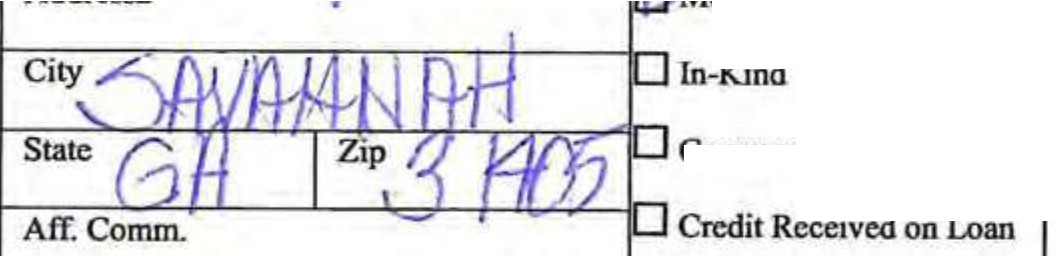 City SAVANNAH
In-Kind
State GA Zip 31405
Aff. Comm.
Credit Received on Loan